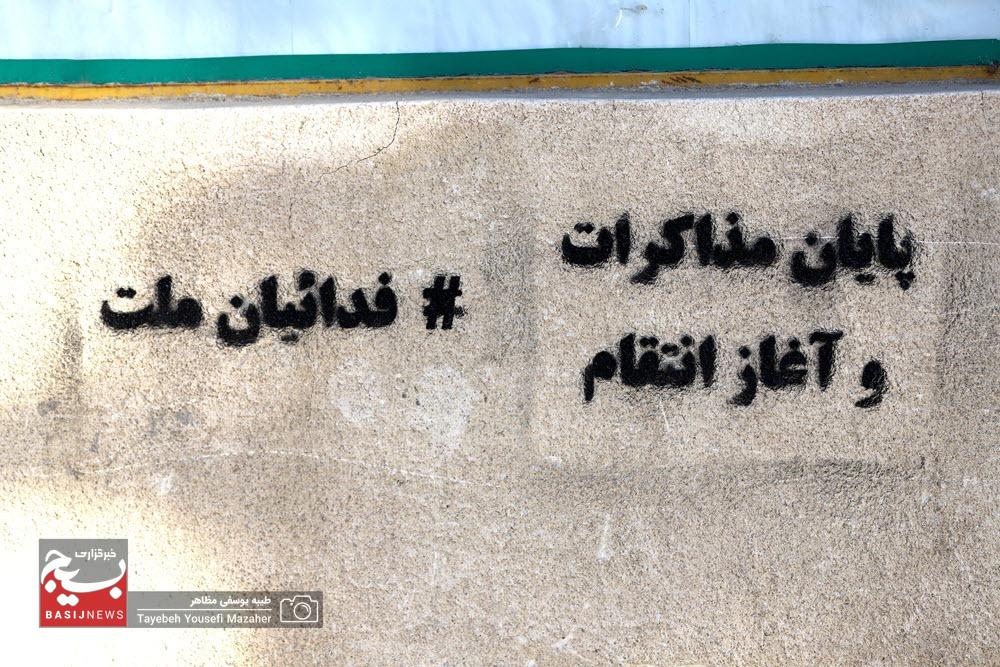 پایان مذاکرات
و آغاز انتقام
# فدائیان ملت
خبرگزاری
بسیج
BASIJNEWS
طیبه یوسفی مظاهر
Tayebeh Yousefi Mazaher